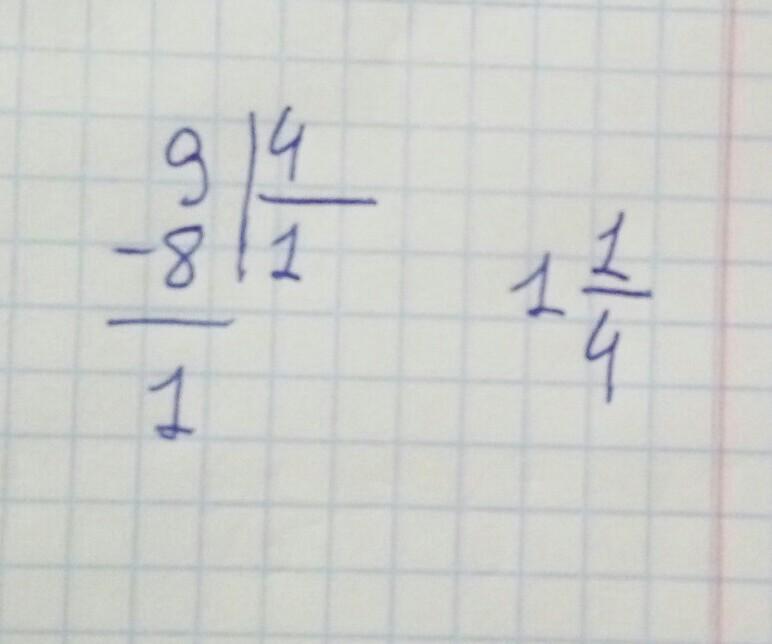 9 | 4
-8 | 1
1
1 1/4